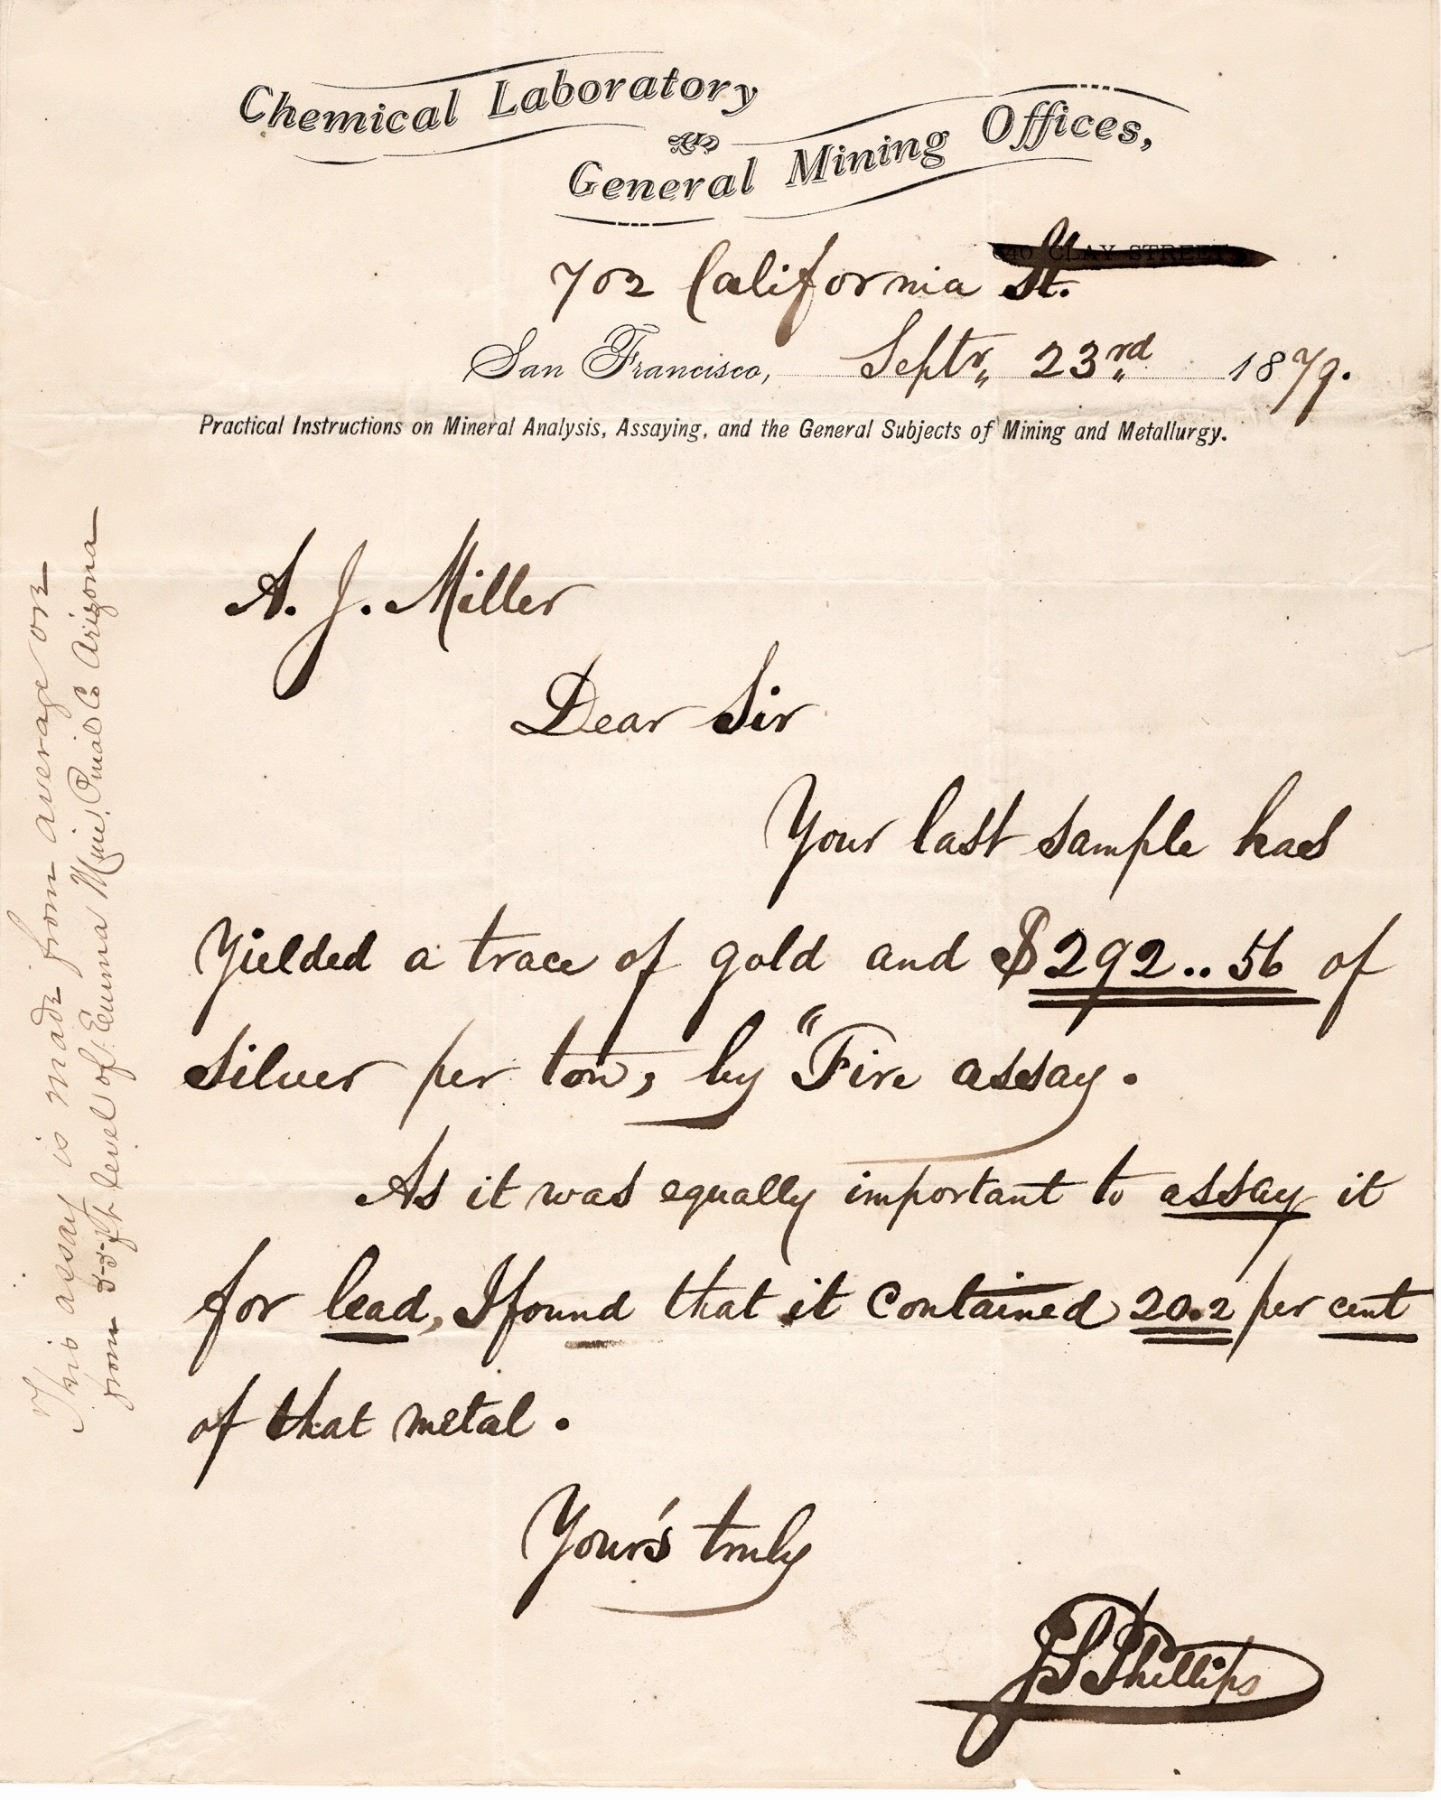 Chemical Laboratory
General Mining Offices,
CLAY STREET
702 California St.
San Francisco, Septr 23rd 1879.
Practical Instructions on Mineral Analysis, Assaying, and the General Subjects of Mining and Metallurgy.
A. J. Miller
Dear Sir
Your last sample has
yielded a trace of gold and $292..56 of
silver per ton, by "Fire assay.
As it was equally important to assay it
for lead, I found that it contained 20.2 per cent
of that metal.
Your's truly
JS Phillips
This assay is made from average ore
from 55 ft level of Emma Mine, Pinal Co Arizona